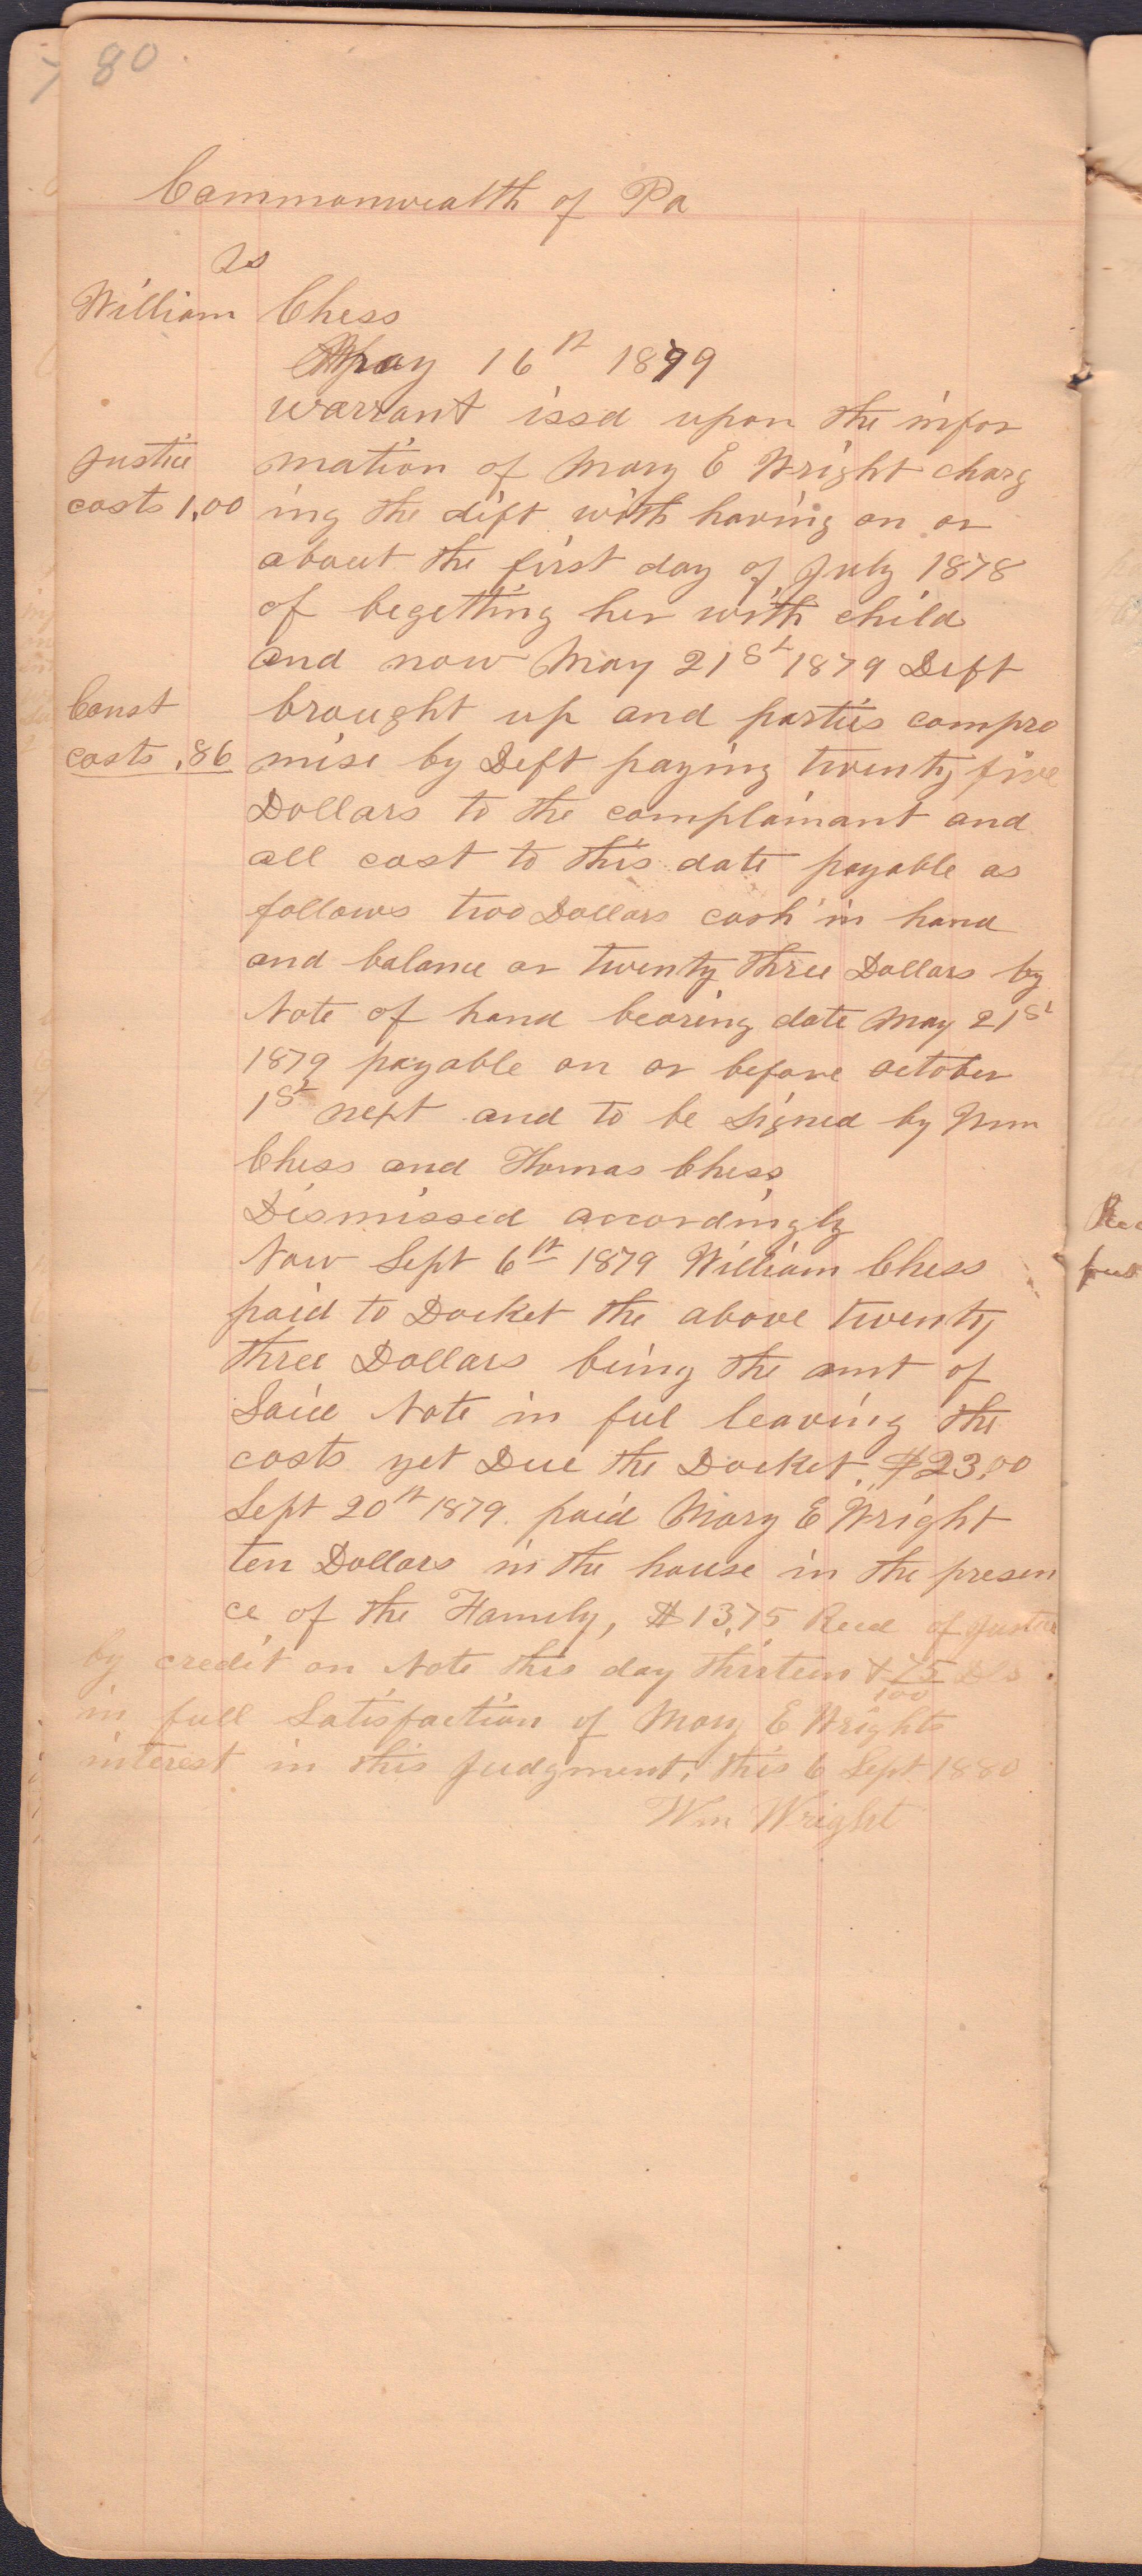 80
Commonwealth of Pa
vs
William Chess
May 16th 1879
warrant issd upon the infor
Justice mation of Mary E Wright charg
costs 1,00 ing the dift with having on or
about the first day of July 1878
of begetting her with child
and now May 21st 1879 Deft
Const brought up and parties compro
costs ,86 mise by Deft paying twenty five
Dollars to the complainant and
all cost to this date payable as
follows two Dollars cash in hand
and balance or twenty three Dollars by
Note of hand bearing date May 21st
1879 payable on or before october
1st next and to be signed by Wm
Chess and Thomas Chess
Dismissed accordingly
Now Sept 6th 1879 William Chess
paid to Docket the above twenty
three Dollars being the amt of
Said Note in ful leaving the
costs yet Due the Docket. $23,00
Sept 20th 1879. paid Mary E Wright
ten Dollars in the house in the presen
ce of the Family, $13,75 Recd of Justice
by credit on Note this day thirteen & 75/100 Dls
in full Satisfaction of Mary E Wrights
interest in this Judgment, this 6 Sept 1880
Wm Wright